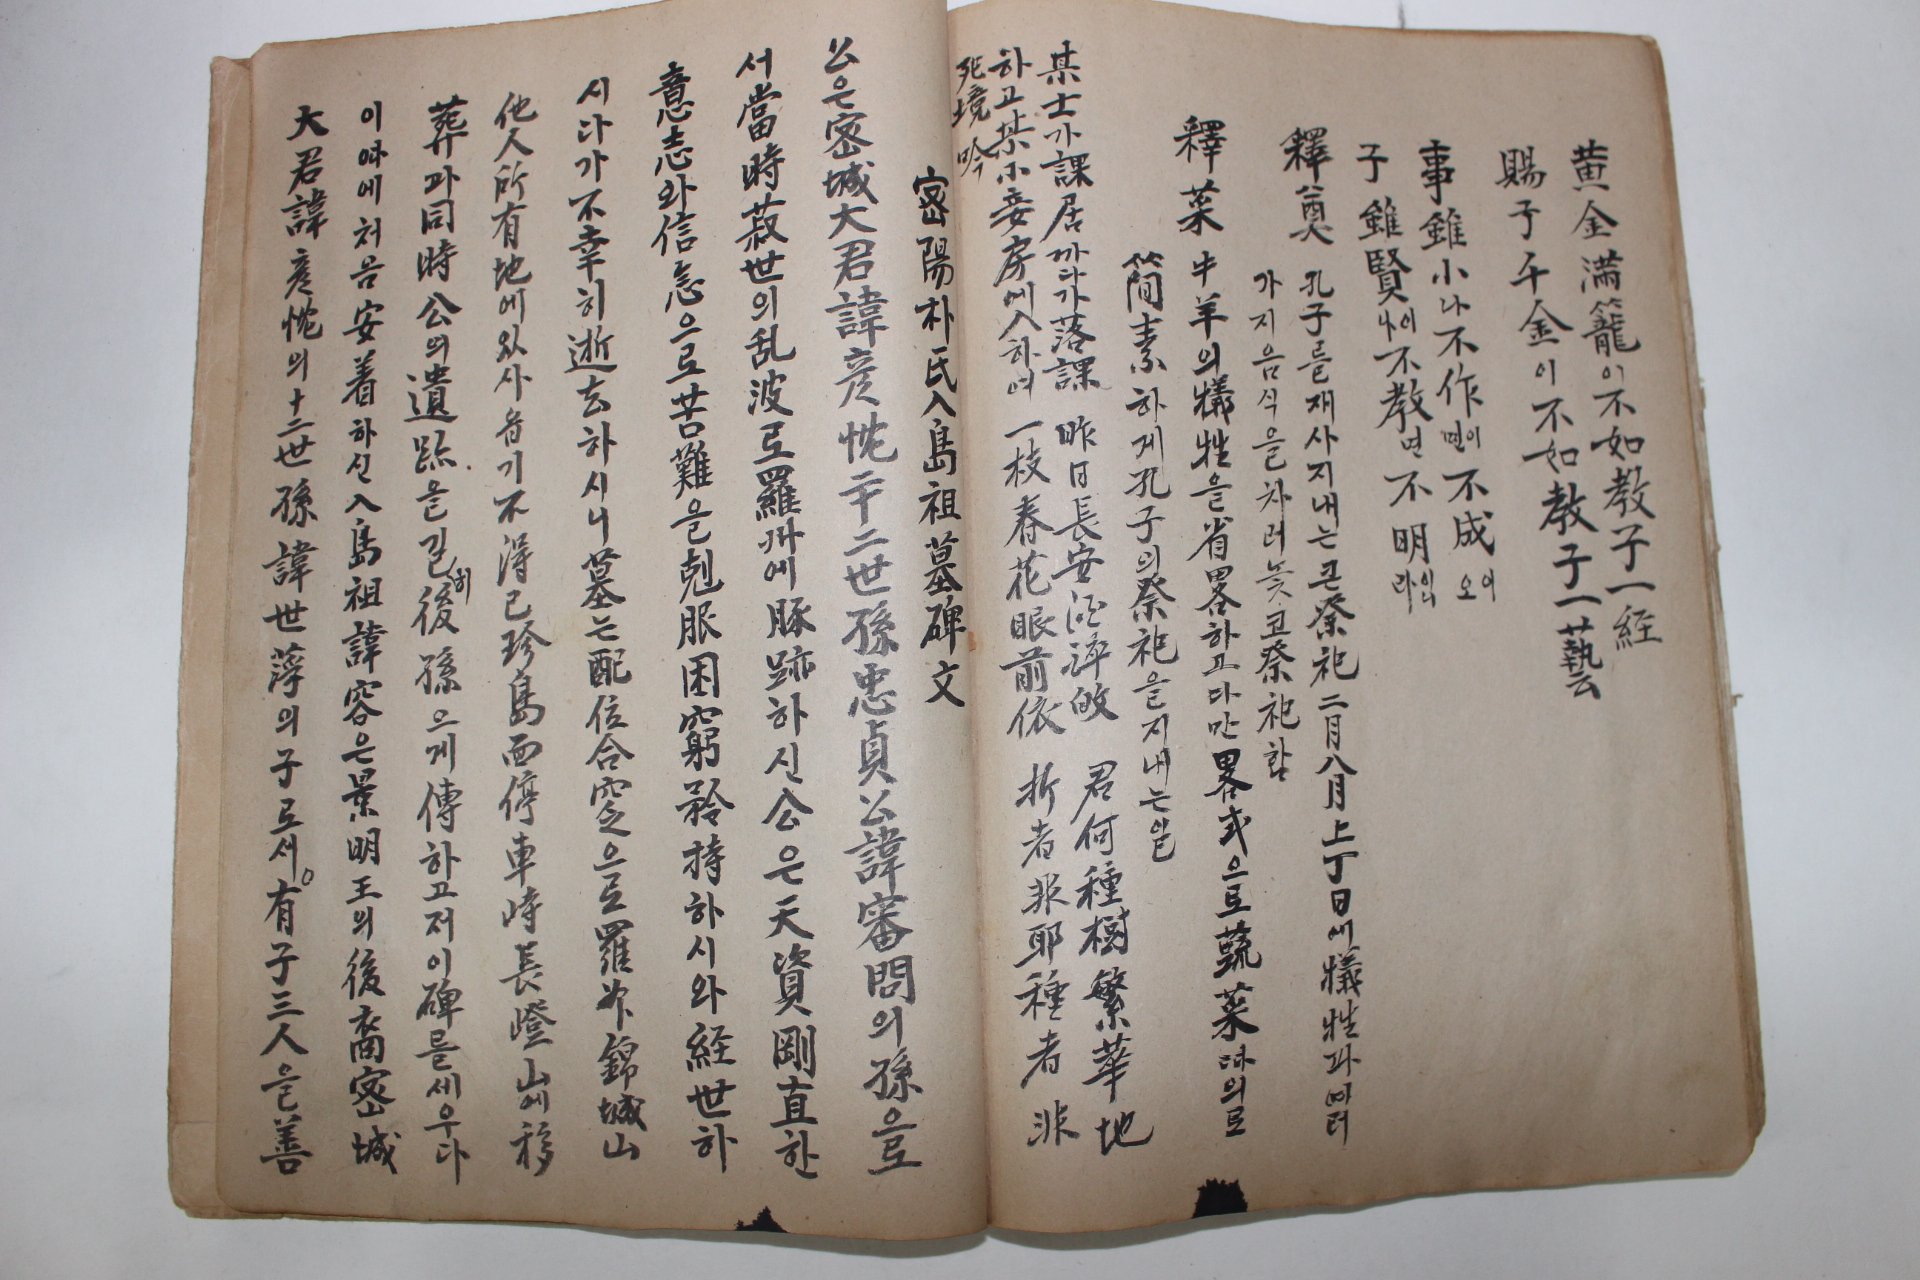 黄金満籠이不如教子一経
賜子千金이不如教子一藝
事雖小나不作이면不成이오
子雖賢이나不教면不明이라
釋奠 孔子를재사지내는큰祭祀二月八月上丁日에犧牲과여러
가지음식을차려놋코祭祀함
釋菜 牛羊의犧牲을省畧하고다만畧式으로蔬菜따의로
簡素하게孔子의祭祀을지내는일
某士가課居까다가落課 昨日長安 君何種樹繁華地
하고某小妾房에入하여一枝春花眼前依 折者非耶種者非
死境吟
密陽朴氏入島祖墓碑文
公은密城大君諱彦忱二十二世孫忠貞公諱審問의孫으로
서當時菽世의乱波로羅州에豚跡하신公은天資剛直한
意志와信念으로苦難을剋服困窮矜持하시와経世하
시다가不幸히逝去하시니墓는配位合窆으로羅州錦城山
他人所有地에있사옵기不得已珍島面停車峙長嶝山에移
葬과同時公의遺跡을길히後孫으게傳하고저이碑를세우다
이따에처음安着하신入島祖諱容은景明王의後裔密城
大君諱彦忱의十二世孫諱世萍의子로서有子三人을善